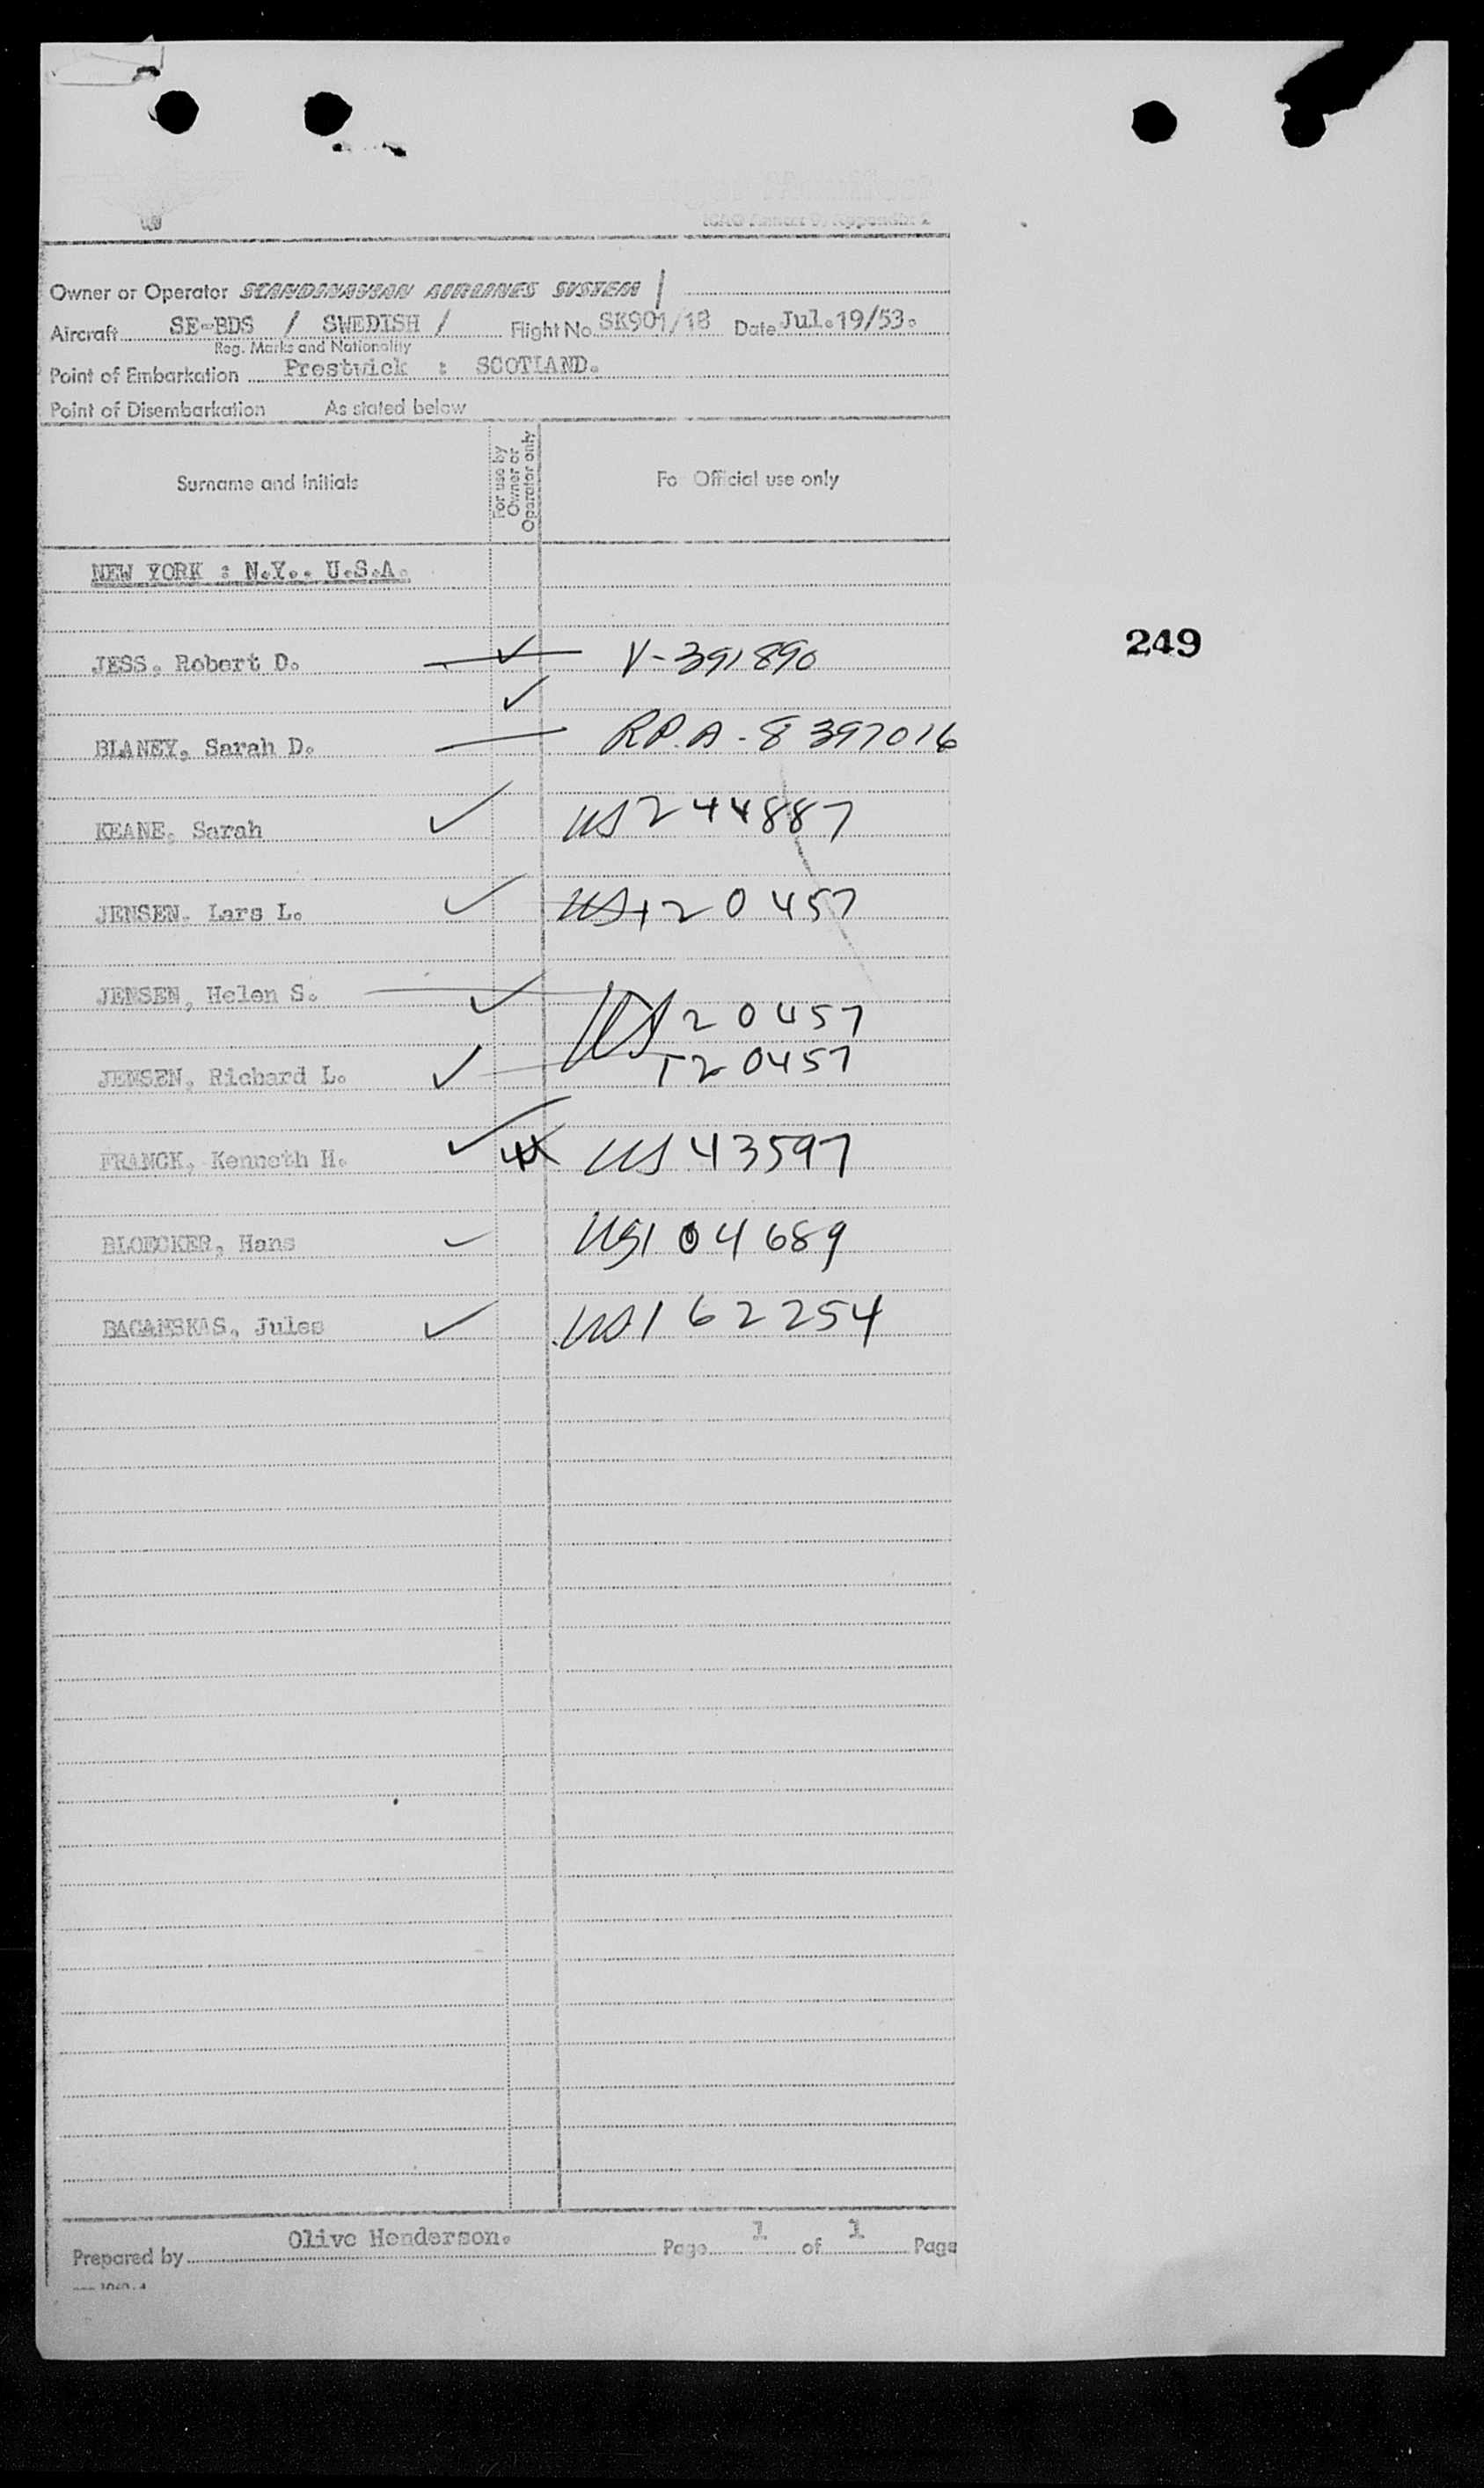 ICAO Annex 9, Appendix 2
Owner or Operator SCANDINAVIAN AIRLINES SYSTEM
Aircraft SE-BDS / SWEDISH / Flight No. SK901/18 Date Jul.19/53.
Reg. Marks and Nationality
Point of Embarkation Prestwick : SCOTLAND.
Point of Disembarkation As stated below
Surname and Initials
For use by
Owner or
Operator only
Fo Official use only
NEW YORK : N.Y.. U.S.A.
249
JESS, Robert D. V-391890
BLANEY, Sarah D. RP.A-8397016
KEANE, Sarah US 244887
JENSEN, Lars L. US 120457
JENSEN, Helen S. US 20457
JENSEN, Richard L. 120457
FRANCK, Kenneth H. US 43597
BLOECKER, Hans US 104689
BAGANSKAS, Jules US 162254
Prepared by Olive Henderson. Page 1 of 1 Page